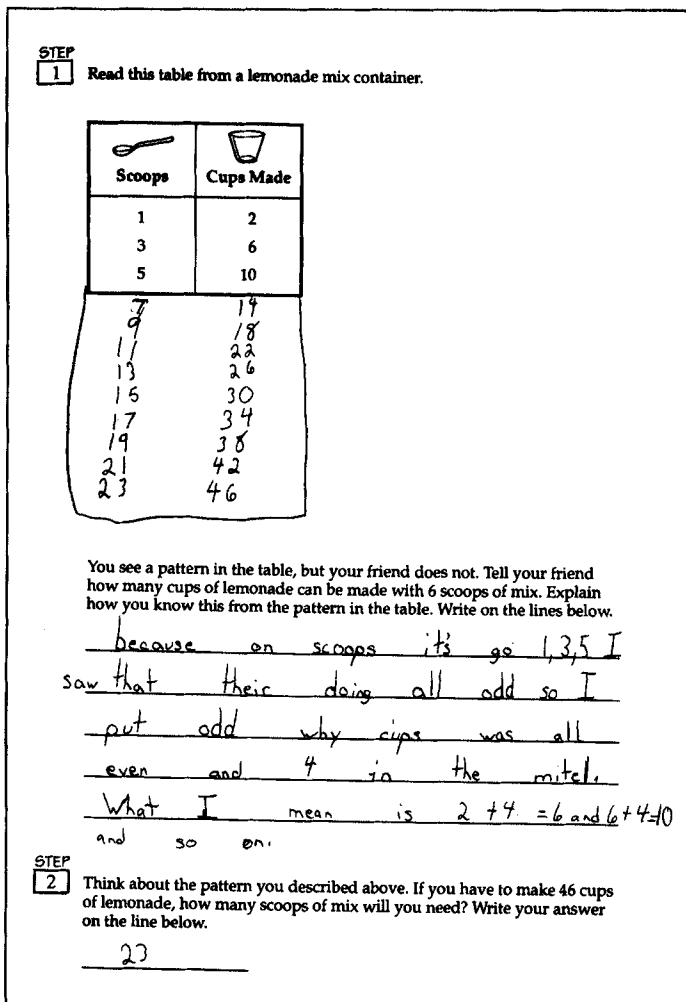 STEP
1 Read this table from a lemonade mix container.
Scoops Cups Made
1 2
3 6
5 10
7 14
9 18
11 22
13 26
15 30
17 34
19 38
21 42
23 46
You see a pattern in the table, but your friend does not. Tell your friend
how many cups of lemonade can be made with 6 scoops of mix. Explain
how you know this from the pattern in the table. Write on the lines below.
because on scoops it's go 1,3,5 I
saw that their doing all odd so I
put odd why cups was all
even and 4 in the mitel.
What I mean is 2 +4 = 6 and 6+4=10
and so on.
STEP
2 Think about the pattern you described above. If you have to make 46 cups
of lemonade, how many scoops of mix will you need? Write your answer
on the line below.
23